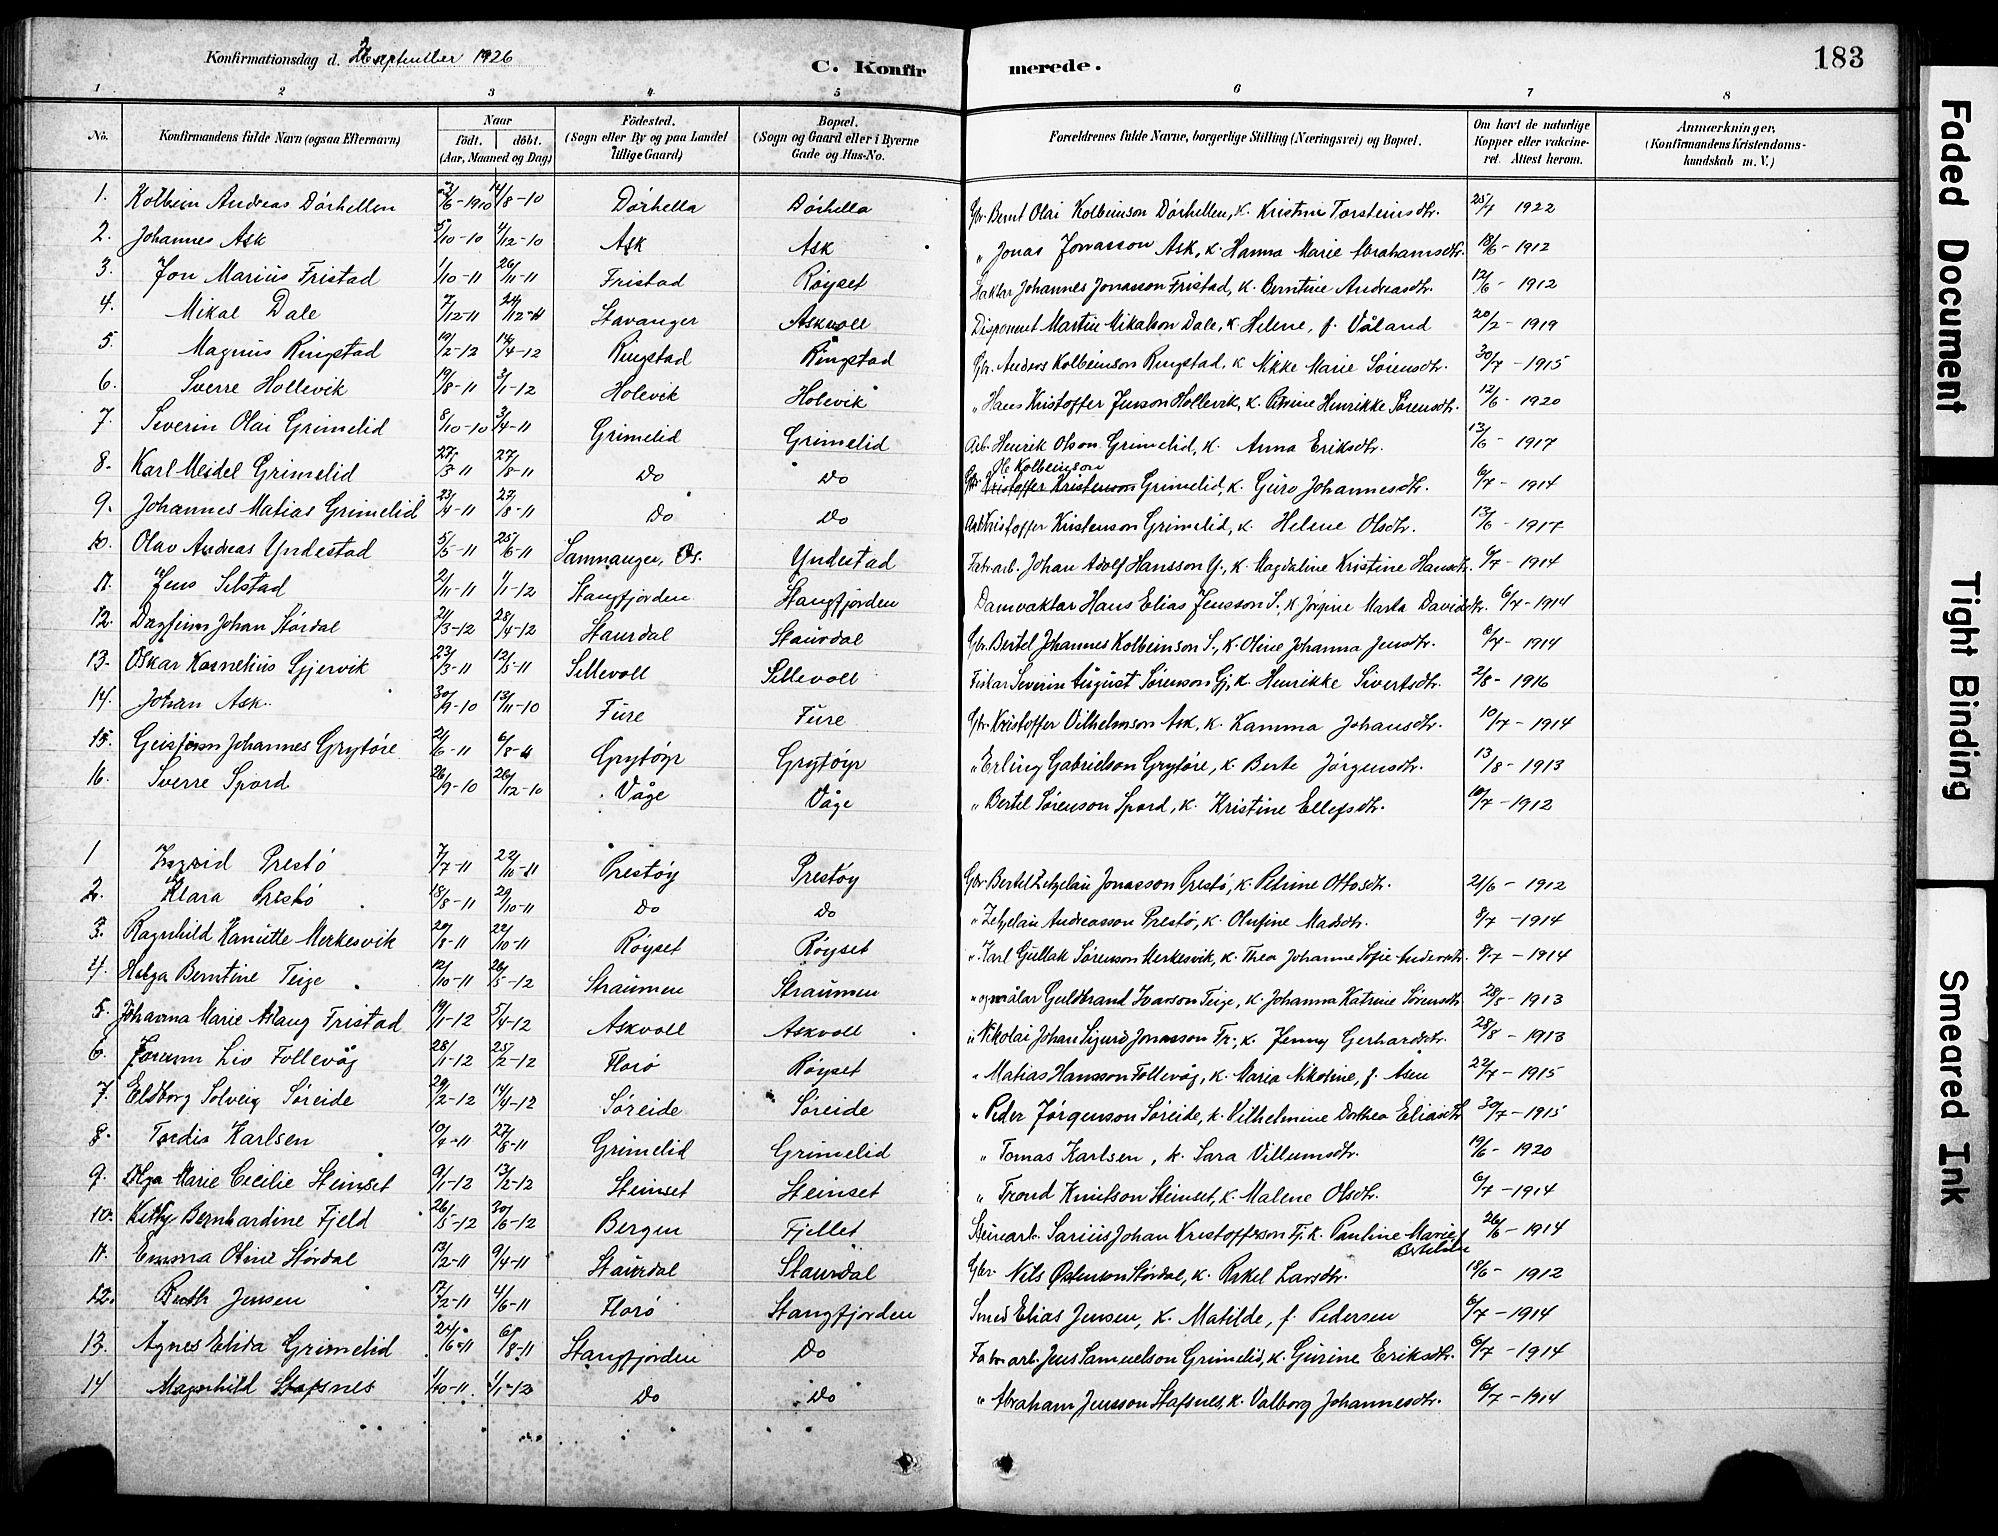 Konfirmationsdag d. september 1926
C. Konfirmerede.
183
1 2 3 4 5 6 7 8
No.
Konfirmandens fulde Navn (ogsaa Efternavn)
Naar født. døbt. (Aar, Maaned og Dag)
Fødested. (Sogn eller By og paa Landet tillige Gaard)
Bopæl. (Sogn og Gaard eller i Byerne Gade og Hus-No.
Forældrenes fulde Navne, borgerlige Stilling (Næringsvei) og Bopæl.
Om havt de naturlige Kopper eller vakcineret. Attest herom.
Anmærkninger, (Konfirmandens Kristendomskundskab m. V.)
1. Kolbein Andreas Dørhellen 3/6-1910 14/8-10 Dørhella Dørhella Gbr. Bernt Olai Kolbeinson Dørhellen, K. Kristine Torsteinsdtr. 25/7 1922
2. Johannes Ask 5/10-10 4/12-10 Ask Ask " Jonas Jonasson Ask, K. Hanna Marie Abrahamsdtr. 18/6-1912
3. Jon Marius Fristad 1/10-11 26/11-11 Fristad Røyset Johannes Jonasson Fristad, K. Berntine Andreasdtr. 12/6-1912
4. Mikal Dale 7/12-11 24/12-11 Stavanger Askvoll Disponent Martin Mikalson Dale, K. Helene, f. Våland 20/2-1919
5. Magnus Ringstad 19/2-12 14/4-12 Ringstad Ringstad Gbr. Anders Kolbeinson Ringstad, K. Mikke Marie Sørensdtr. 30/7-1915
6. Sverre Hollevik 19/8-11 3/1-12 Holevik Holevik " Hans Kristoffer Jenson Hollevik, K. Petrine Henrikke Sørensdtr. 12/6-1920
7. Severin Olai Grimelid 8/10-10 3/4-11 Grimelid Grimelid Arb. Henrik Olson Grimelid, K. Anna Eriksdtr. 13/6-1917
8. Karl Meidel Grimelid 27/3-11 27/8-11 Do Do Gbr. Kristoffer Kristenson Ole Kolbeinson Grimelid, K. Guro Johannesdtr. 6/7-1914
9. Johannes Matias Grimelid 23/4-11 27/8-11 Do Do Arb. Kristoffer Kristenson Grimelid, K. Helene Olsdtr. 13/6-1917
10. Olav Andreas Yndestad 5/5-11 25/6-11 Samnanger, Os. Yndestad Fabr.arb. Johan Adolf Hansson Y., K. Magdaline Kristine Hansdtr. 6/7-1914
11. Jens Selstad 2/11-11 1/1-12 Stangfjorden Stangfjorden Damvaktar Hans Elias Jensson S., K. Jørgine Marta Davidsdtr. 6/7-1914
12. Dagfinn Johan Størdal 21/3-12 28/4-12 Staurdal Staurdal Gbr. Bertel Johannes Kolbeinson S., K. Oline Johanna Jensdtr. 6/7-1914
13. Oskar Kornelius Gjervik 23/3-11 12/5-11 Sellevoll Sellevoll Fiskar Severin August Sørenson Gj, K. Henrikke Sivertsdtr. 2/8-1916
14. Johan Ask. 30/9-10 13/11-10 Fure Fure Gbr. Kristoffer Vilhelmson Ask, K. Kamma Johansdtr. 10/7-1914
15. Johannes Grytøre 21/6-11 6/8-11 Grytøyr Grytøyr " Erling Gabrielson Grytøre, K. Berte Jørgensdtr. 13/8-1913
16. Sverre Spord 26/9-10 26/12-10 Våge Våge " Bertel Sørenson Spord, K. Kristine Ellefsdtr. 10/7-1912
1 Ingrid Prestø 7/7-11 22/10-11 Prestøy Prestøy Gbr. Bertel Zefelau Jonasson Prestø, K. Petrine Ottosdtr. 21/6-1912
2. Klara Prestø 18/8-11 29/10-11 Do Do " Zefelau Andreasson Prestø, K. Olufine Madsdtr. 8/7-1914
3. Ragnhild Kanutte Merkesvik 20/8-11 22/10-11 Røyset Røyset " Karl Gullak Sørenson Merkesvik, K. Thea Johanne Sofie Andersdtr. 8/7-1914
4. Helga Berntine Teige 12/10-11 26/5-12 Straumen Straumen " og målar Guldbrand Ivarson Teige, K. Johanna Katrine Sørensdtr. 28/8-1913
5. Johanna Marie Aslaug Fristad 19/1-12 5/4-12 Askvoll Askvoll " Nikolai Johan Sigurd Jonasson Fr., K. Jenny Gerhardsdtr. 28/8-1913
6. Jorunn Liv Follevåg 28/1-12 25/2-12 Florø Røyset " Matias Hansson Follevåg, K. Maria Nikoline, f. Åsen 22/7-1915
7. Eldborg Solveig Søreide 29/2-12 14/4-12 Søreide Søreide " Peder Jørgenson Søreide, K. Vilhelmine Dorthea Eliasdtr 30/7-1915
8. Tordis Karlsen 10/4-11 27/8-11 Grimelid Grimelid " Tomas Karlsen, K. Sara Villumsdtr. 19/6-1920
9. Olga Marie Cecilie Steinset 9/1-12 13/2-12 Steinset Steinset " Trond Knutson Steinset, K. Malene Olsdtr. 6/7-1914
10. Kitty Bernhardine Fjeld 26/5-12 30/6-12 Bergen Fjellet Steinarb. Sarius Johan Kristofferson Fj. K. Pauline Marie, f. 26/6-1914
11. Emma Oline Størdal 13/2-11 9/4-11 Staurdal Staurdal Gbr. Nils Østenson Størdal, K. Rakel Larsdtr. 18/6-1912
12. Ruth Jensen 17/2-11 4/6-11 Florø Stangfjorden Smed Elias Jensen, K. Matilde, f. Pedersen 6/7-1914
13. Agnes Elida Grimelid 24/6-11 6/8-11 Stangfjorden Do Fabr.arb. Jens Samuelson Grimelid, K. Gurine Eriksdtr. 6/7-1914
14 Magnhild Stafsnes 1/10-11 1/1-12 Do Do " Abraham Jensson Stafsnes, K. Valborg Johannesdtr. 6/7-1914
Faded Document
Tight Binding
Smeared Ink